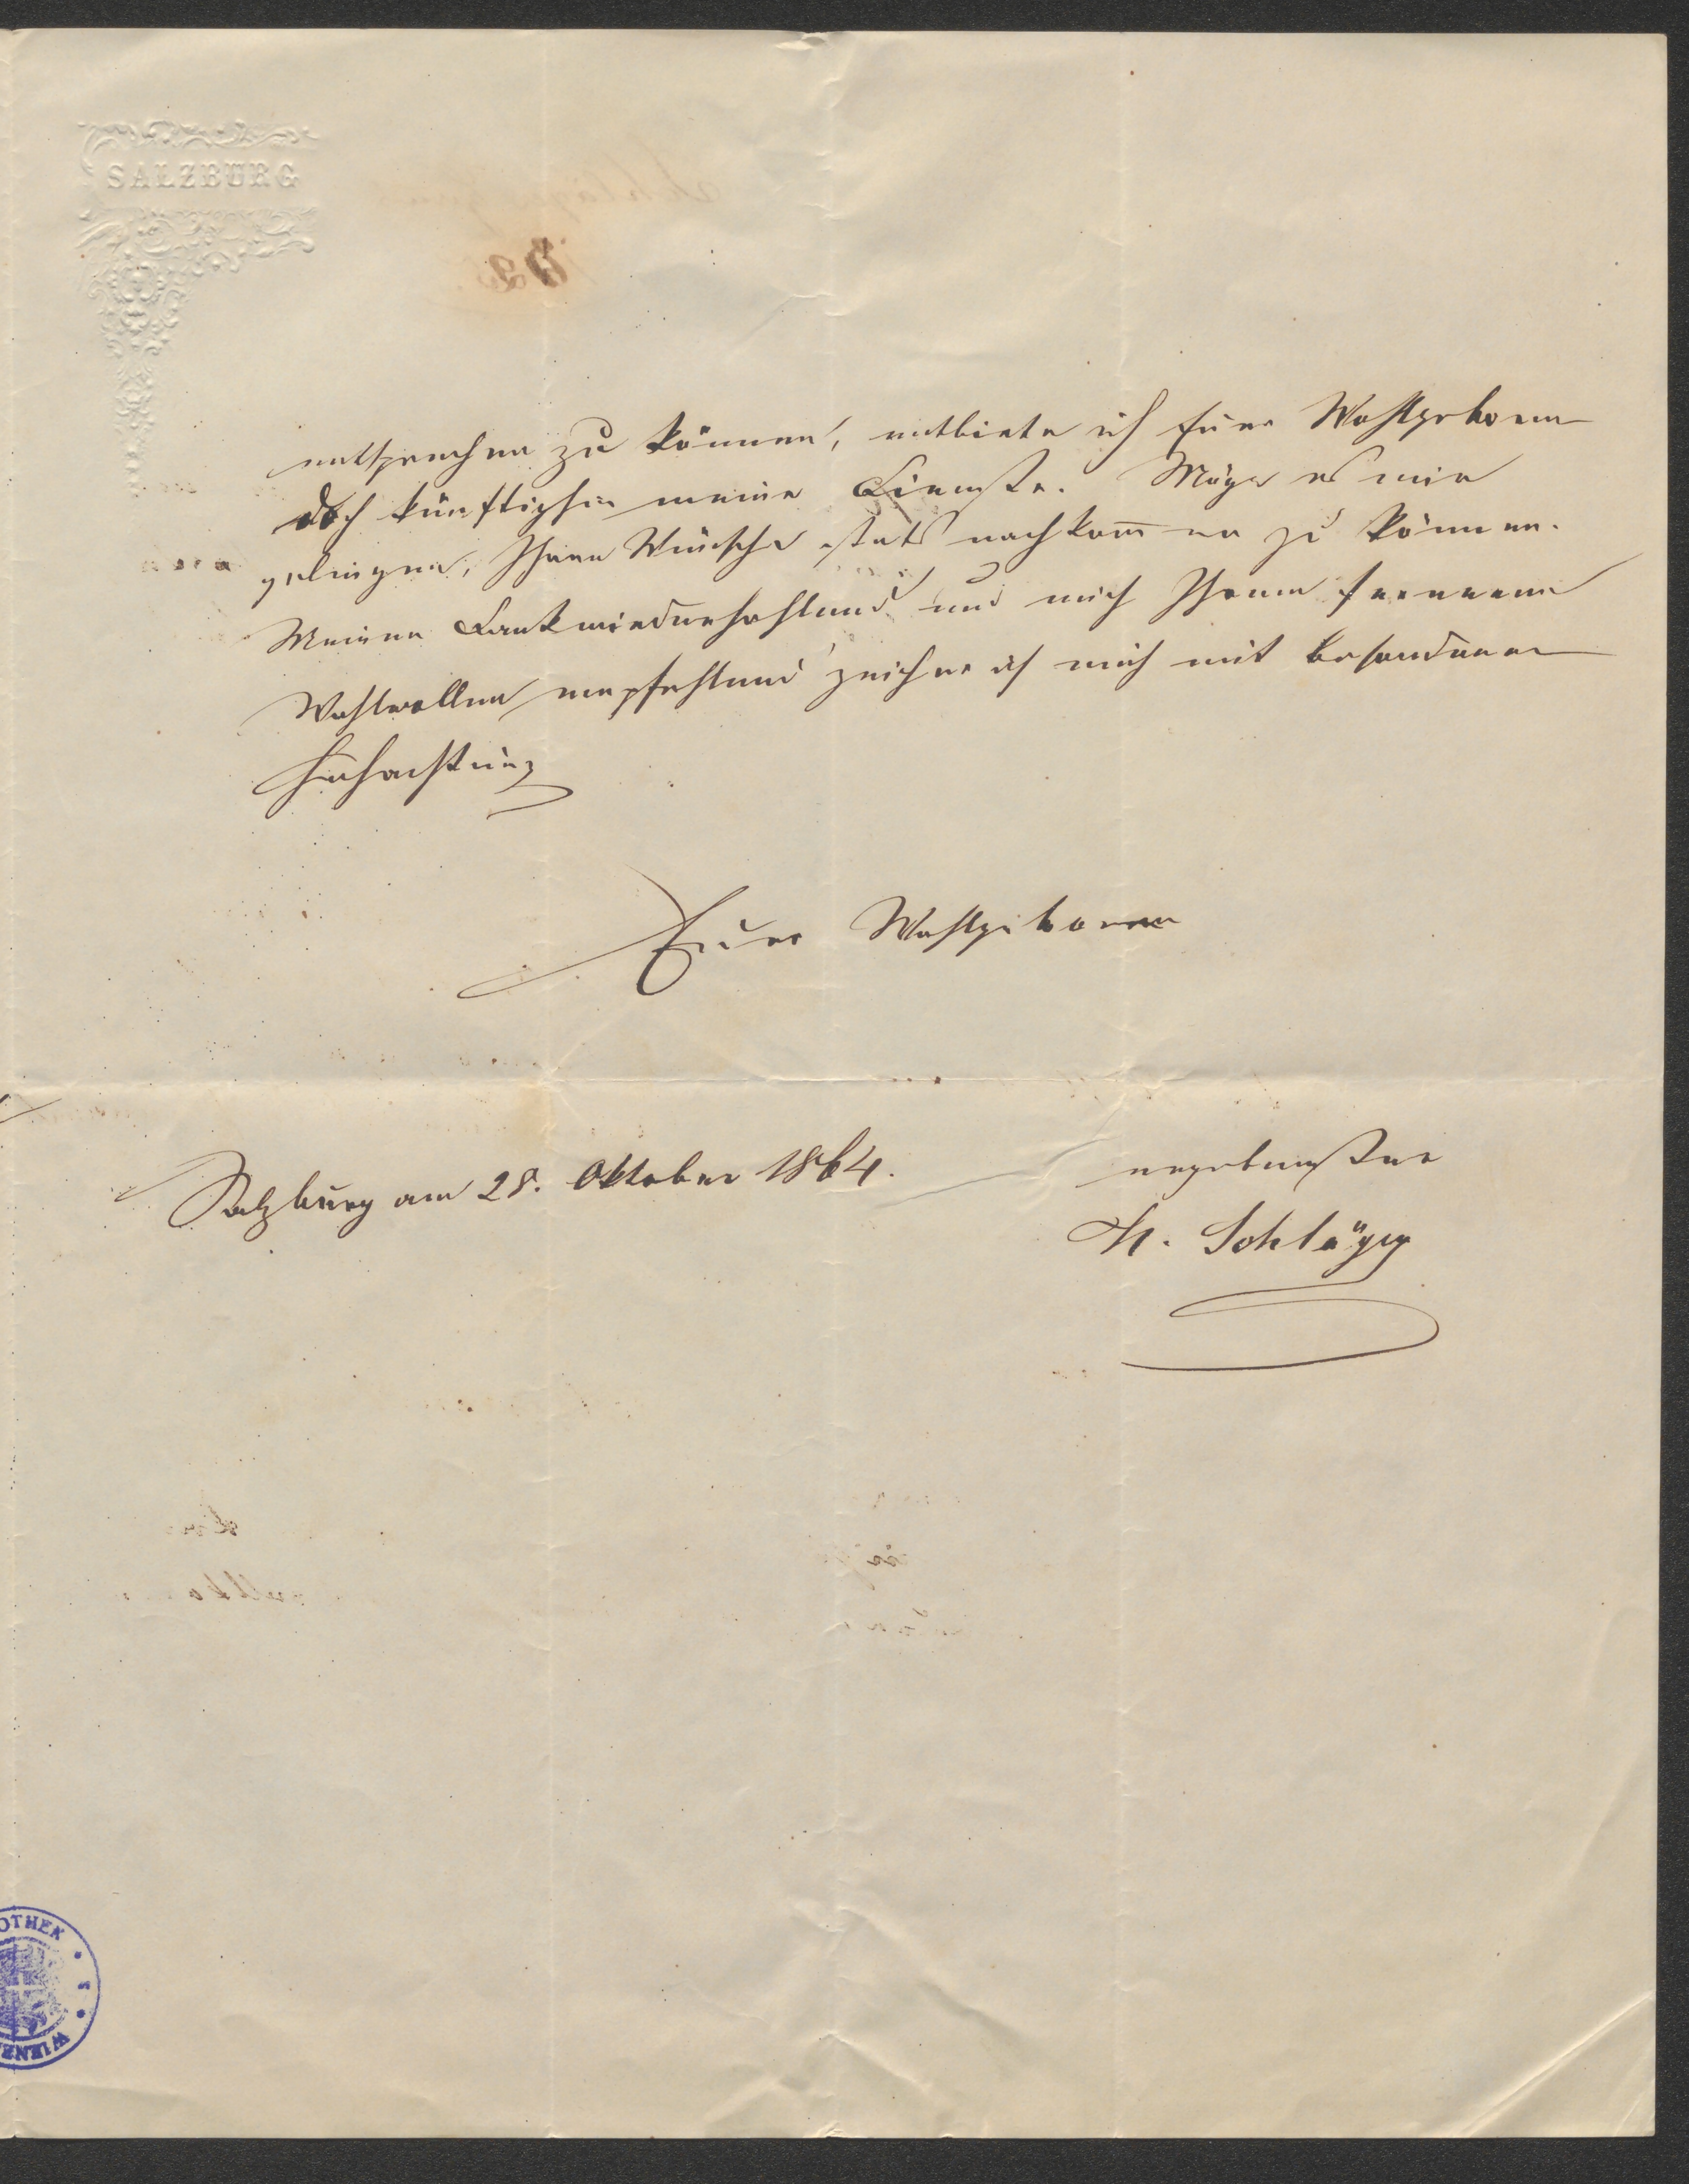 SALZBURG
entsprechen zu können, entbiete ich Euer Wohlgeboren
doch künftighin meine Dienste. Möge es mir
gelingen, Ihren Wünschen stets nachkom̅en zu können.
Meinen Dank wiederhohlend und mich Ihrem ferneren
Wohlwollen empfehlend zeichne ich mich mit besonderer
Hochachtung
Euer Wohlgeboren
Salzburg am 28. Oktober 1864.
ergebenster
H. Schläger
OTHEK
WIENE